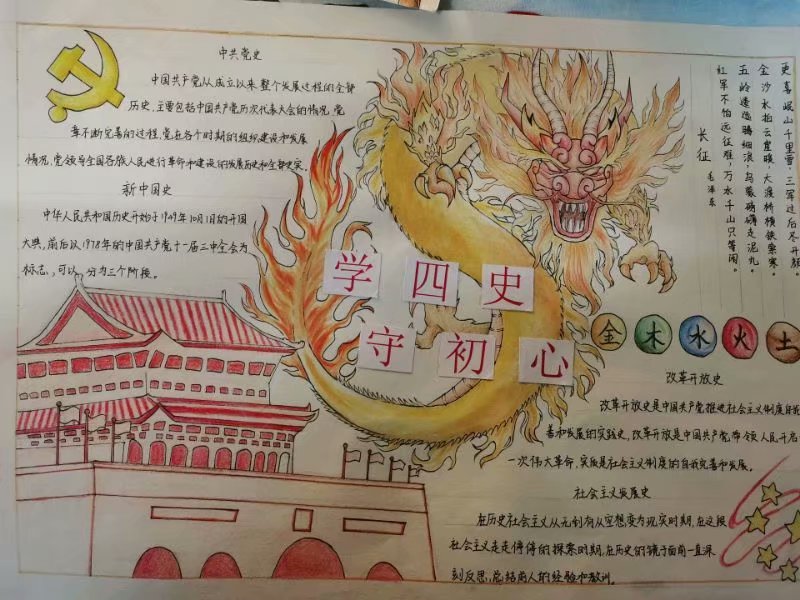 中共党史
中国共产党从成立以来整个发展过程的全部
历史,主要包括中国共产党历次代表大会的情况,党
章不断完善的过程,党在各个时期的组织建设和发展
情况,党领导全国各族人民进行革命和建设的发展历史和全部史实。
新中国史
中华人民共和国历史开始于1949年10月1日的开国
大典,前后以1978年的中国共产党十一届三中全会为
标志,可以分为三个阶段。
学四史
守初心
长征
毛泽东
红军不怕远征难,万水千山只等闲。
五岭逶迤腾细浪,乌蒙磅礴走泥丸。
金沙水拍云崖暖,大渡桥横铁索寒。
更喜岷山千里雪,三军过后尽开颜。
金木水火土
改革开放史
改革开放史是中国共产党推进社会主义制度自我
善和发展的实践史,改革开放是中国共产党带领人民开启
一次伟大革命,实质是社会主义制度的自我完善和发展。
社会主义发展史
在历史社会主义从无到有从空想变为现实时期,在这段
社会主义走走停停的探索时期,在历史的镜子面前一直深
刻反思,总结前人的经验和教训。